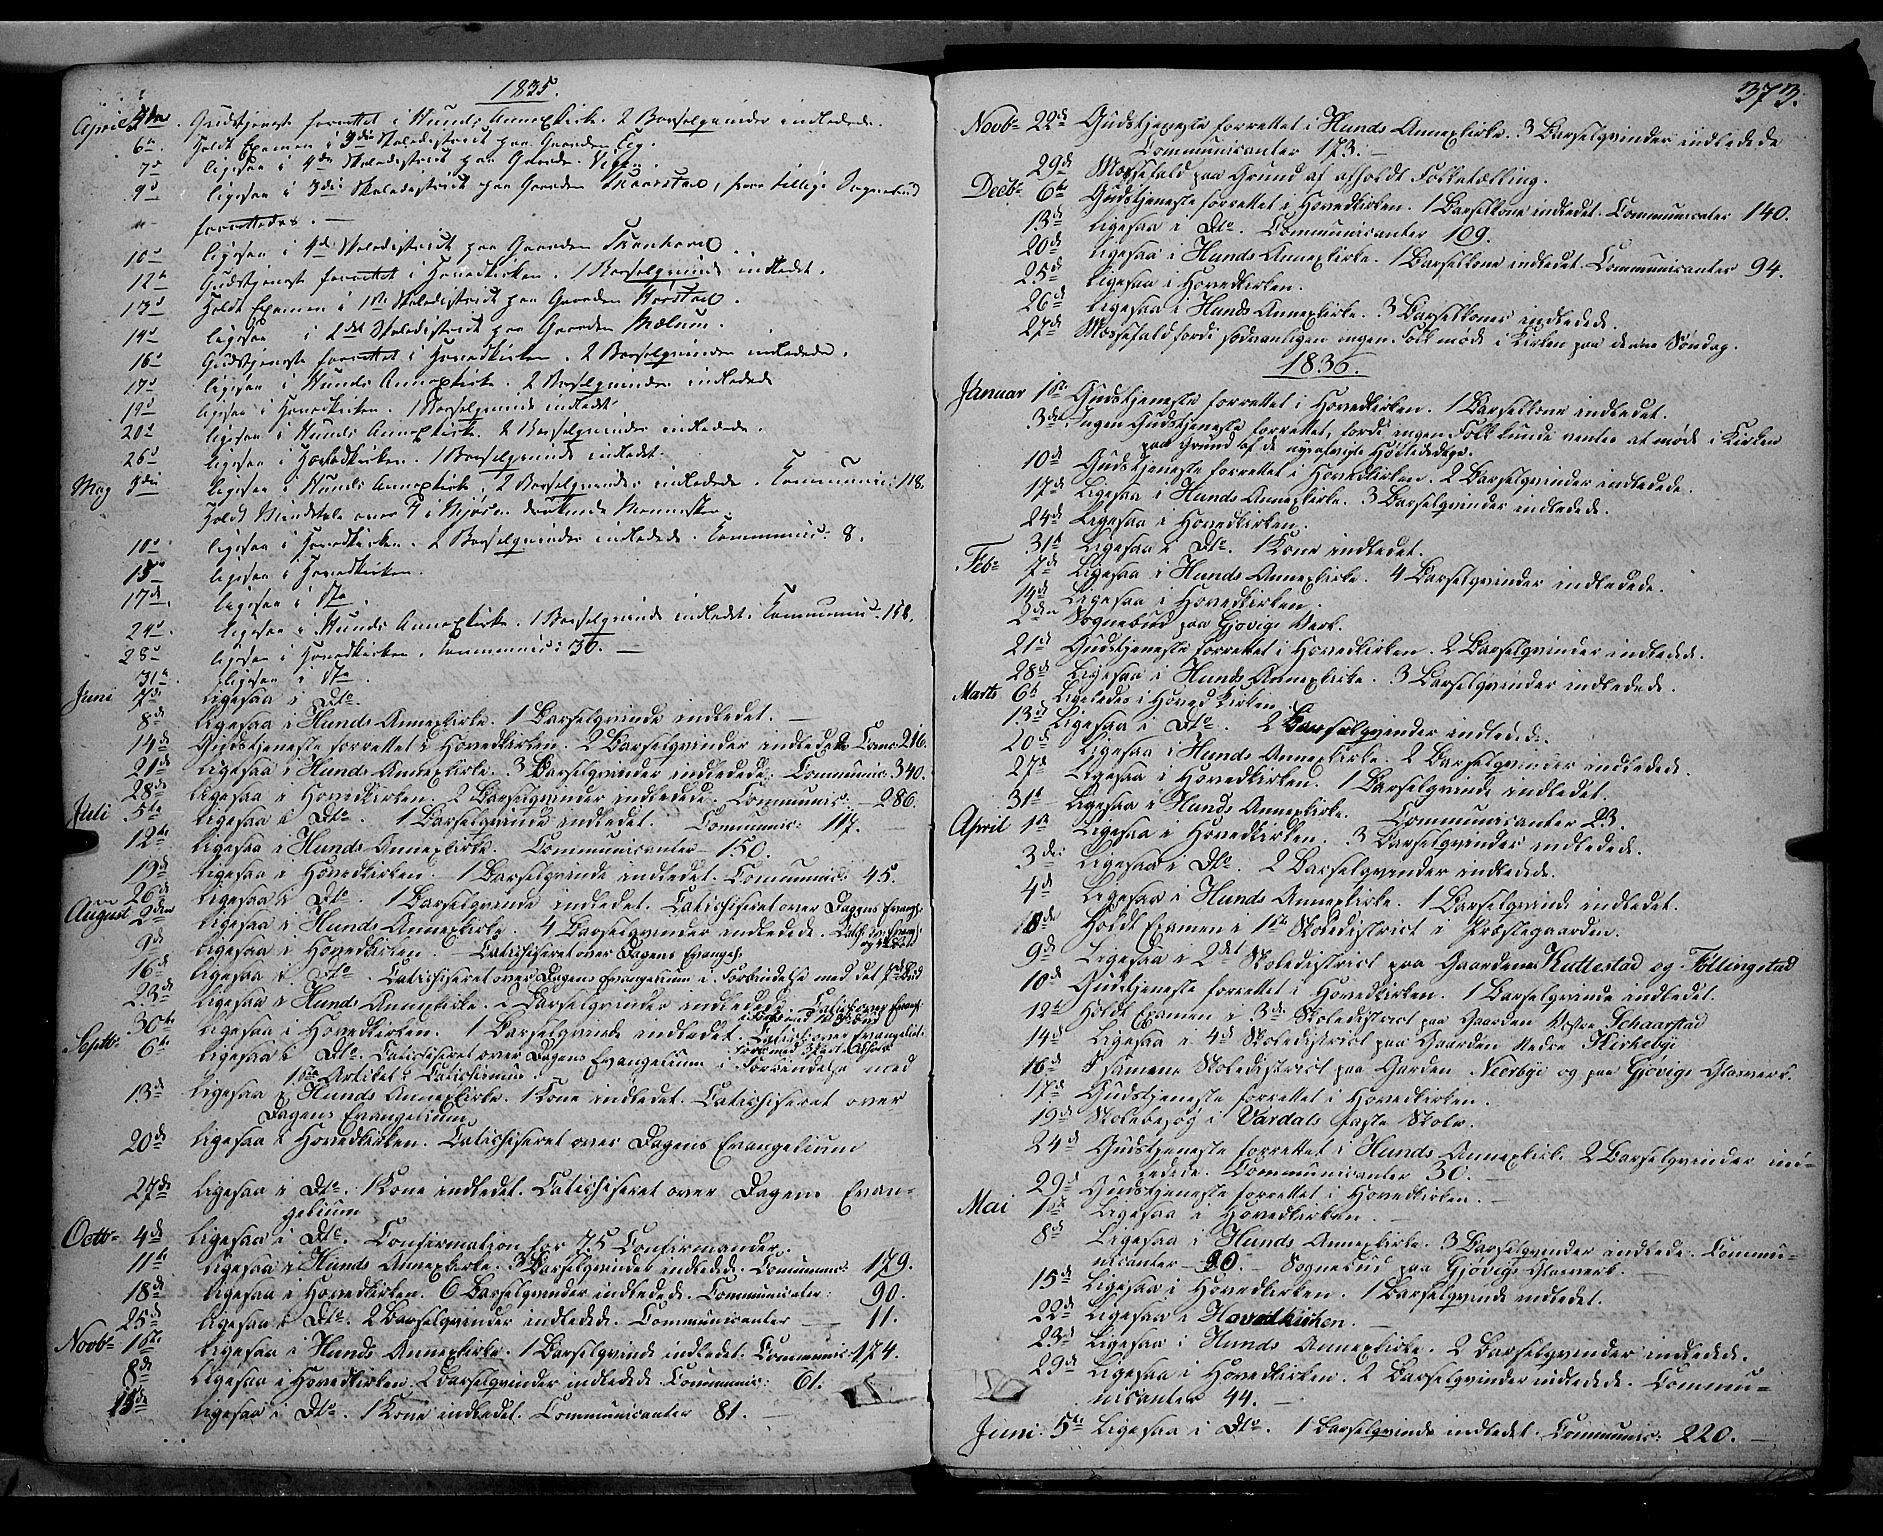 1835.
April 5te. Gudstjeneste forrettet i Hunds Annexkirke. 2 Barselqvinder indledede.
6te Holdt Examen i 3die Skoledistrict paa Gaarden
7de ligesaa i 4de Skoledistrict paa Gaarden
9de ligesaa i 3die Skoledistrict paa Gaarden Skaarstad, hvor tillige Sognebud
forrettedes. —
10de ligesaa i 4de Skoledistrict paa Gaarden
12te Gudstjeneste forrettet i Hovedkirken. 1 Barselqvinde indledet.
13de Holdt Examen i 1ste Skoledistrict paa Gaarden
14de ligesaa i 2det Skoledistrict paa Gaarden Mælum.
16de Gudstjeneste forrettet i Hovedkirken. 2 Barselqvinder indledede.
17de ligesaa i Hunds Annexkirke. 2 Barselqvinder indledede
19de ligesaa i Hovedkirken. 1 Barselqvinde indledet.
20de ligesaa i Hunds Annexkirke. 2 Barselqvinder indledede.
26de ligesaa i Hovedkirken. 1 Barselqvinde indledet.
May 3die ligesaa i Hunds Annexkirke. 2 Barselqvinder indledede. Communic: 118.
Holdt Mindetale over 7 i Mjøsen druknede Mennesker.
10de ligesaa i Hovedkirken. 2 Barselqvinder indledede. Communic: 8.
15de ligesaa i Hovedkirken.
17de ligesaa i Dto.
24de ligesaa i Hunds Annexkirke. 1 Barselqvinde indledet. Communic: 158.
28de ligesaa i Hovedkirken. Communic: 36. —
31te ligesaa i Dto.
Juni 7de ligesaa i Dto.
8de ligesaa i Hunds Annexkirke. 1 Barselqvinde indledet. —
14de Gudstjeneste forrettet i Hovedkirken. 2 Barselqvinder indledede Com: 216.
21de ligesaa i Hunds Annexkirke. 3 Barselqvinder indledede. Communic: 340.
28de ligesaa i Hovedkirken. 2 Barselqvinder indledede. Communic: — 286.
Juli 5te ligesaa i Dto. 1 Barselqvinde indledet. Communic: 117. —
12te ligesaa i Hunds Annexkirke. Communicanter — 150.
19de ligesaa i Hovedkirken. 1 Barselqvinde indledet. Communic: 45.
26de ligesaa i Dto. 1 Barselqvinde indledet. Catechiseret over Dagens Evang:
August 2den ligesaa i Hunds Annexkirke. 4 Barselqvinder indledede. Catech. over Evang:
9de ligesaa i Hovedkirken. — Catechiseret over Dagens Evangel:
16de ligesaa i Dto. Catechiseret over Dagens Evangelium i Forbindelse med det
23de ligesaa i Hunds Annexkirke. 2 Barselqvinder indledede. Catech: over Evang:
30te ligesaa i Hovedkirken. 1 Barselqvinde indledet. Catech: over Evangeliet
Septbr 6te ligesaa i Dto. Catechiseret over Dagens Evangelium i Forbindelse med
1ste Artikel i Catechismus.
13de ligesaa i Hunds Annexkirke. 1 Kone indledet. Catechiseret over
Dagens Evangelium.
20de ligesaa i Hovedkirken. Catechiseret over Dagens Evangelium
27de ligesaa i Dto. 1 Kone indledet. Catechiseret over Dagens Evan-
gelium
Octbr 4de ligesaa i Dto. Confirmation for 75 Confirmander.
11te ligesaa i Hunds Annexkirke. 3 Barselqvinder indledede. Communic: 179.
18de ligesaa i Hovedkirken. 6 Barselqvinder indledede. Communicanter: 90.
25de ligesaa i Dto. 2 Barselqvinder indledede. Communicanter — 11.
Novbr 1ste ligesaa i Hunds Annexkirke. 1 Barselqvinde indledet. Communic: 174.
8de ligesaa i Hovedkirken. 2 Barselqvinder indledede. Communic: 61.
15de ligesaa i Dto. 1 Kone indledet. Communicanter 81. —
373.
Novbr 22de Gudstjeneste forrettet i Hunds Annexkirke. 3 Barselqvinder indledede
Communicanter 173. —
29de Messefald paa Grund af afholdt Folketælling.
Decbr 6te Gudstjeneste forrettet i Hovedkirken. 1 Barselkone indledet. Communicanter 140.
13de ligesaa i Dto. Communicanter 109.
20de ligesaa i Hunds Annexkirke. 1 Barselkone indledet. Communicanter 94.
25de ligesaa i Hovedkirken.
26de ligesaa i Hunds Annexkirke. 3 Barselkoner indledede.
27de Messefald fordi sædvanligen ingen Folk møde i Kirken paa denne Søndag.
1836.
Januar 1ste Gudstjeneste forrettet i Hovedkirken. 1 Barselkone indledet.
3die Ingen Gudstjeneste forrettet, fordi ingen Folk kunde ventes at møde i Kirken
paa Grund af de Høitidsdage.
10de Gudstjeneste forrettet i Hovedkirken. 2 Barselqvinder indledede.
17de Ligesaa i Hunds Annexkirke. 3 Barselqvinder indledede.
24de Ligesaa i Hovedkirken.
31te Ligesaa i Dto. 1 Kone indledet.
Feb: 7de Ligesaa i Hunds Annexkirke. 4 Barselqvinder indledede.
14de Ligesaa i Hovedkirken.
2den Sognebud paa Gjøvigs Verk.
21de Gudstjeneste forrettet i Hovedkirken. 2 Barselqvinder indledede.
28de Ligesaa i Hunds Annexkirke. 3 Barselqvinder indledede.
Marts 6te Ligeledes i Hoved Kirken.
13de Ligesaa i Dto. 2 Barselqvinder indledede.
20de Ligesaa i Hunds Annexkirke. 2 Barselqvinder indledede.
27de Ligesaa i Hovedkirken. 1 Barselqvinde indledet.
31te Ligesaa i Hunds Annexkirke. Communicanter 23.
April 1ste Ligesaa i Hovedkirken. 3 Barselqvinder indledede.
3die Ligesaa i Dto. 2 Barselqvinder indledede.
4de Ligesaa i Hunds Annexkirke. 1 Barselqvinde indledet.
8de Holdt Examen i 1ste Skoledistrict i Præstegaarden.
9de Ligesaa i 2det Skoledistrict paa Gaardene Kattestad og Føllingstad
10de Gudstjeneste forrettet i Hovedkirken. 1 Barselqvinde indledet.
12te Holdt Examen i 3die Skoledistrict paa Gaarden Vestre Schaarstad
14de Ligesaa i 4de Skoledistrict paa Gaarden Nedre Kirkebye
16de I samme Skoledistrict paa Gaarden Nordbye og paa Gjøvigs Glasverk.
17de Gudstjeneste forrettet i Hovedkirken.
19de Skolebesøg i Vardals faste Skole.
24de Gudstjeneste forrettet i Hunds Annexkirke. 2 Barselqvinder ind-
ledede. Communicanter 30. —
29de Gudstjeneste forrettet i Hovedkirken. —
Mai 1ste Ligesaa i Hovedkirken. —
8de Ligesaa i Hunds Annexkirke. 3 Barselqvinder indledede. Commu-
nicanter — 90. — Sognebud paa Gjøvigs Glasverk. —
15de Ligesaa i Hovedkirken. 1 Barselqvinde indledet.
22de Ligesaa i Hovedkirken. —
23de Ligesaa i Hunds Annexkirke. 2 Barselqvinder indledede.
29de Ligesaa i Hovedkirken. 2 Barselqvinder indledede. Commu-
nicanter 44. —
Juni: 5te Ligesaa i Dto. 1 Barselqvinde indledet. Communic: 220. —